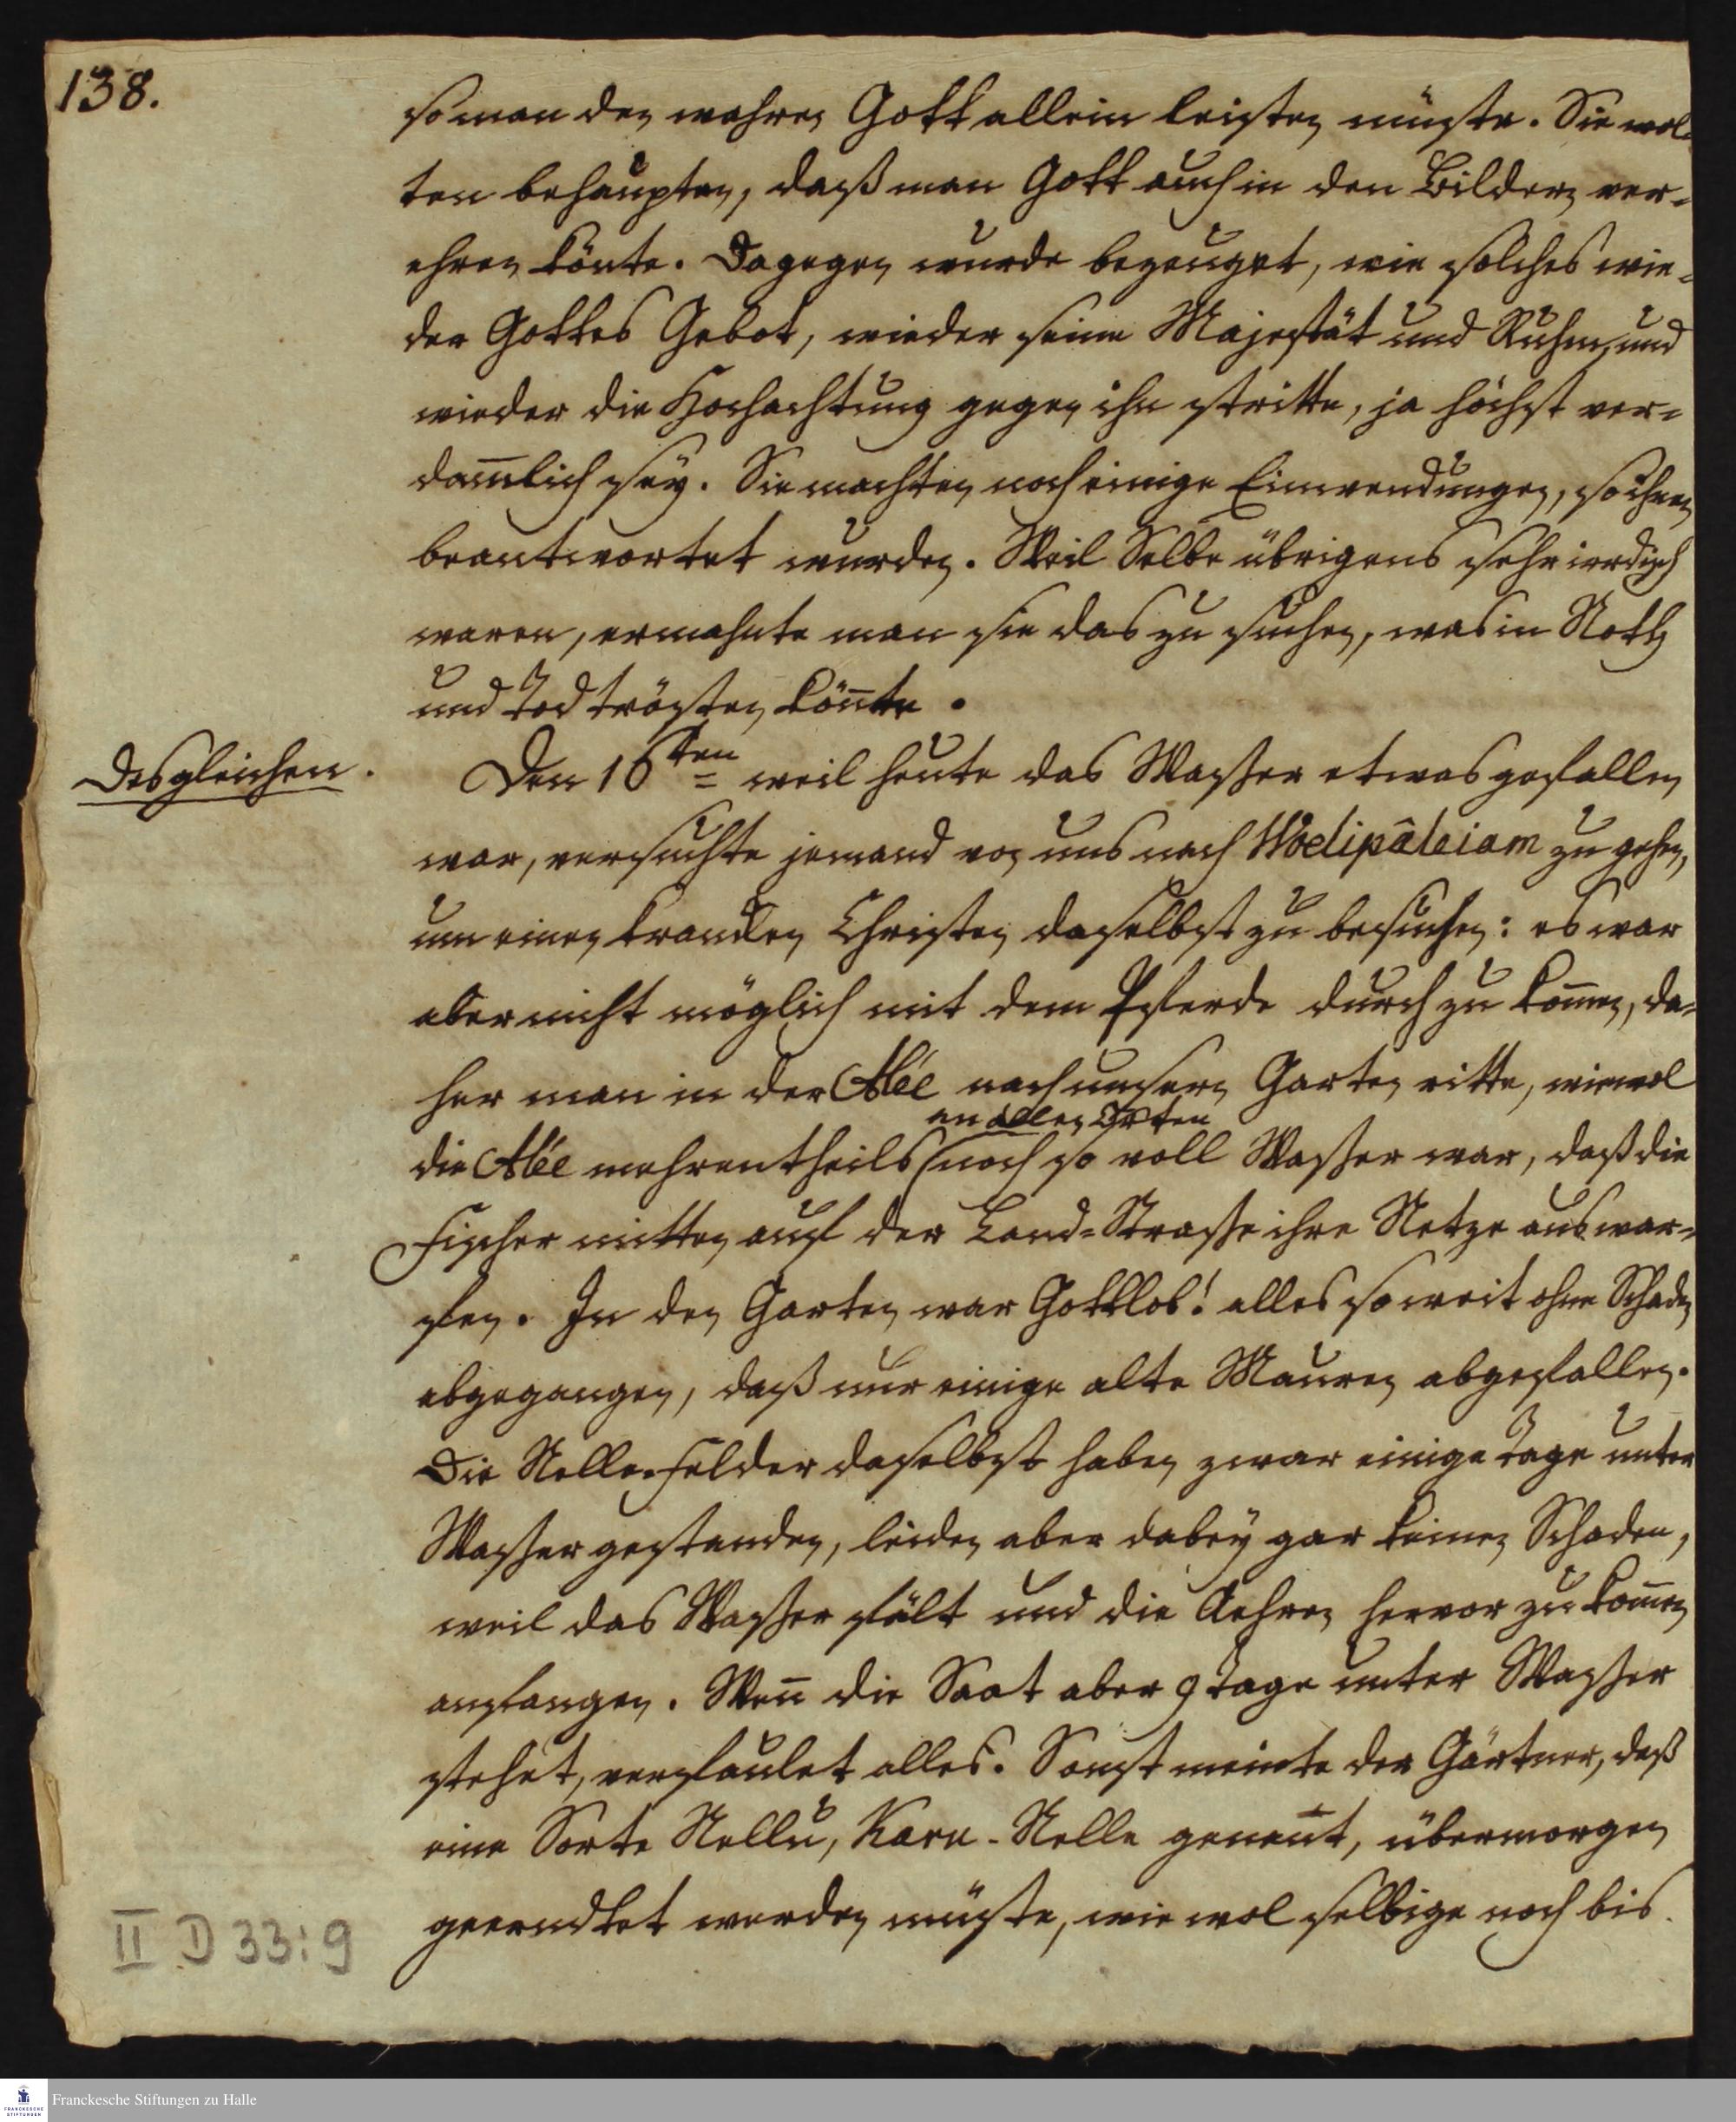 138.
so man den wahren Gott allein leisten müste. Sie wol-
ten behaupten, daß man Gott auch in den Bildern ver-
ehren könte. Dagegen wurde bezeuget, wie solches wie-
der Gottes Gebot, wieder seine Majestät und Ruhm, und
wieder die Hochachtung gegen ihn stritte, ja höchst ver-
dam̄lich sey. Sie machten noch einige Einwendungen, so ihnen
beantwortet wurden. Weil Selbe übrigens sehr irrdisch
waren, ermahnte man sie das zu suchen, was in Noth
und Tod trösten kön̄te.
Desgleichen.
Den 16ten weil heute das Waßer etwas gefallen
war, versuchte jemand von uns nach Woelipâleiam zu gehen,
um einen krancken Christen daselbst zu besuchen: es war
aber nicht möglich mit dem Pferde durch zu kom̄en, da-
her man in der Allée nach unsern Garten ritte, wiewol
an allen Orten
die Allée mehrentheils noch so voll Waßer war, daß die
Fischer mitten auf der Land-Strasse ihre Netze auswar-
fen. In den Garten war Gottlob! alles so weit ohne Schaden
abgegangen, daß nur einige alte Mauren abgefallen.
Die Nelle-Felder daselbst haben zwar einige Tage unter
Waßer gestanden, leiden aber dabey gar keinen Schaden,
weil das Waßer fält und die Aehren hervor zu kom̄en
anfangen. Wen̄ die Saat aber 9 Tage unter Waßer
stehet, verfaulet alles. Sonst meinte der Gärtner, daß
eine Sorte Nellu, Karu-Nelle genen̄t, übermorgen
geerndtet werden müste, wiewol selbige noch bis
II D 33:9
Franckesche Stiftungen zu Halle
FRANCKESCHE
STIFTUNGEN